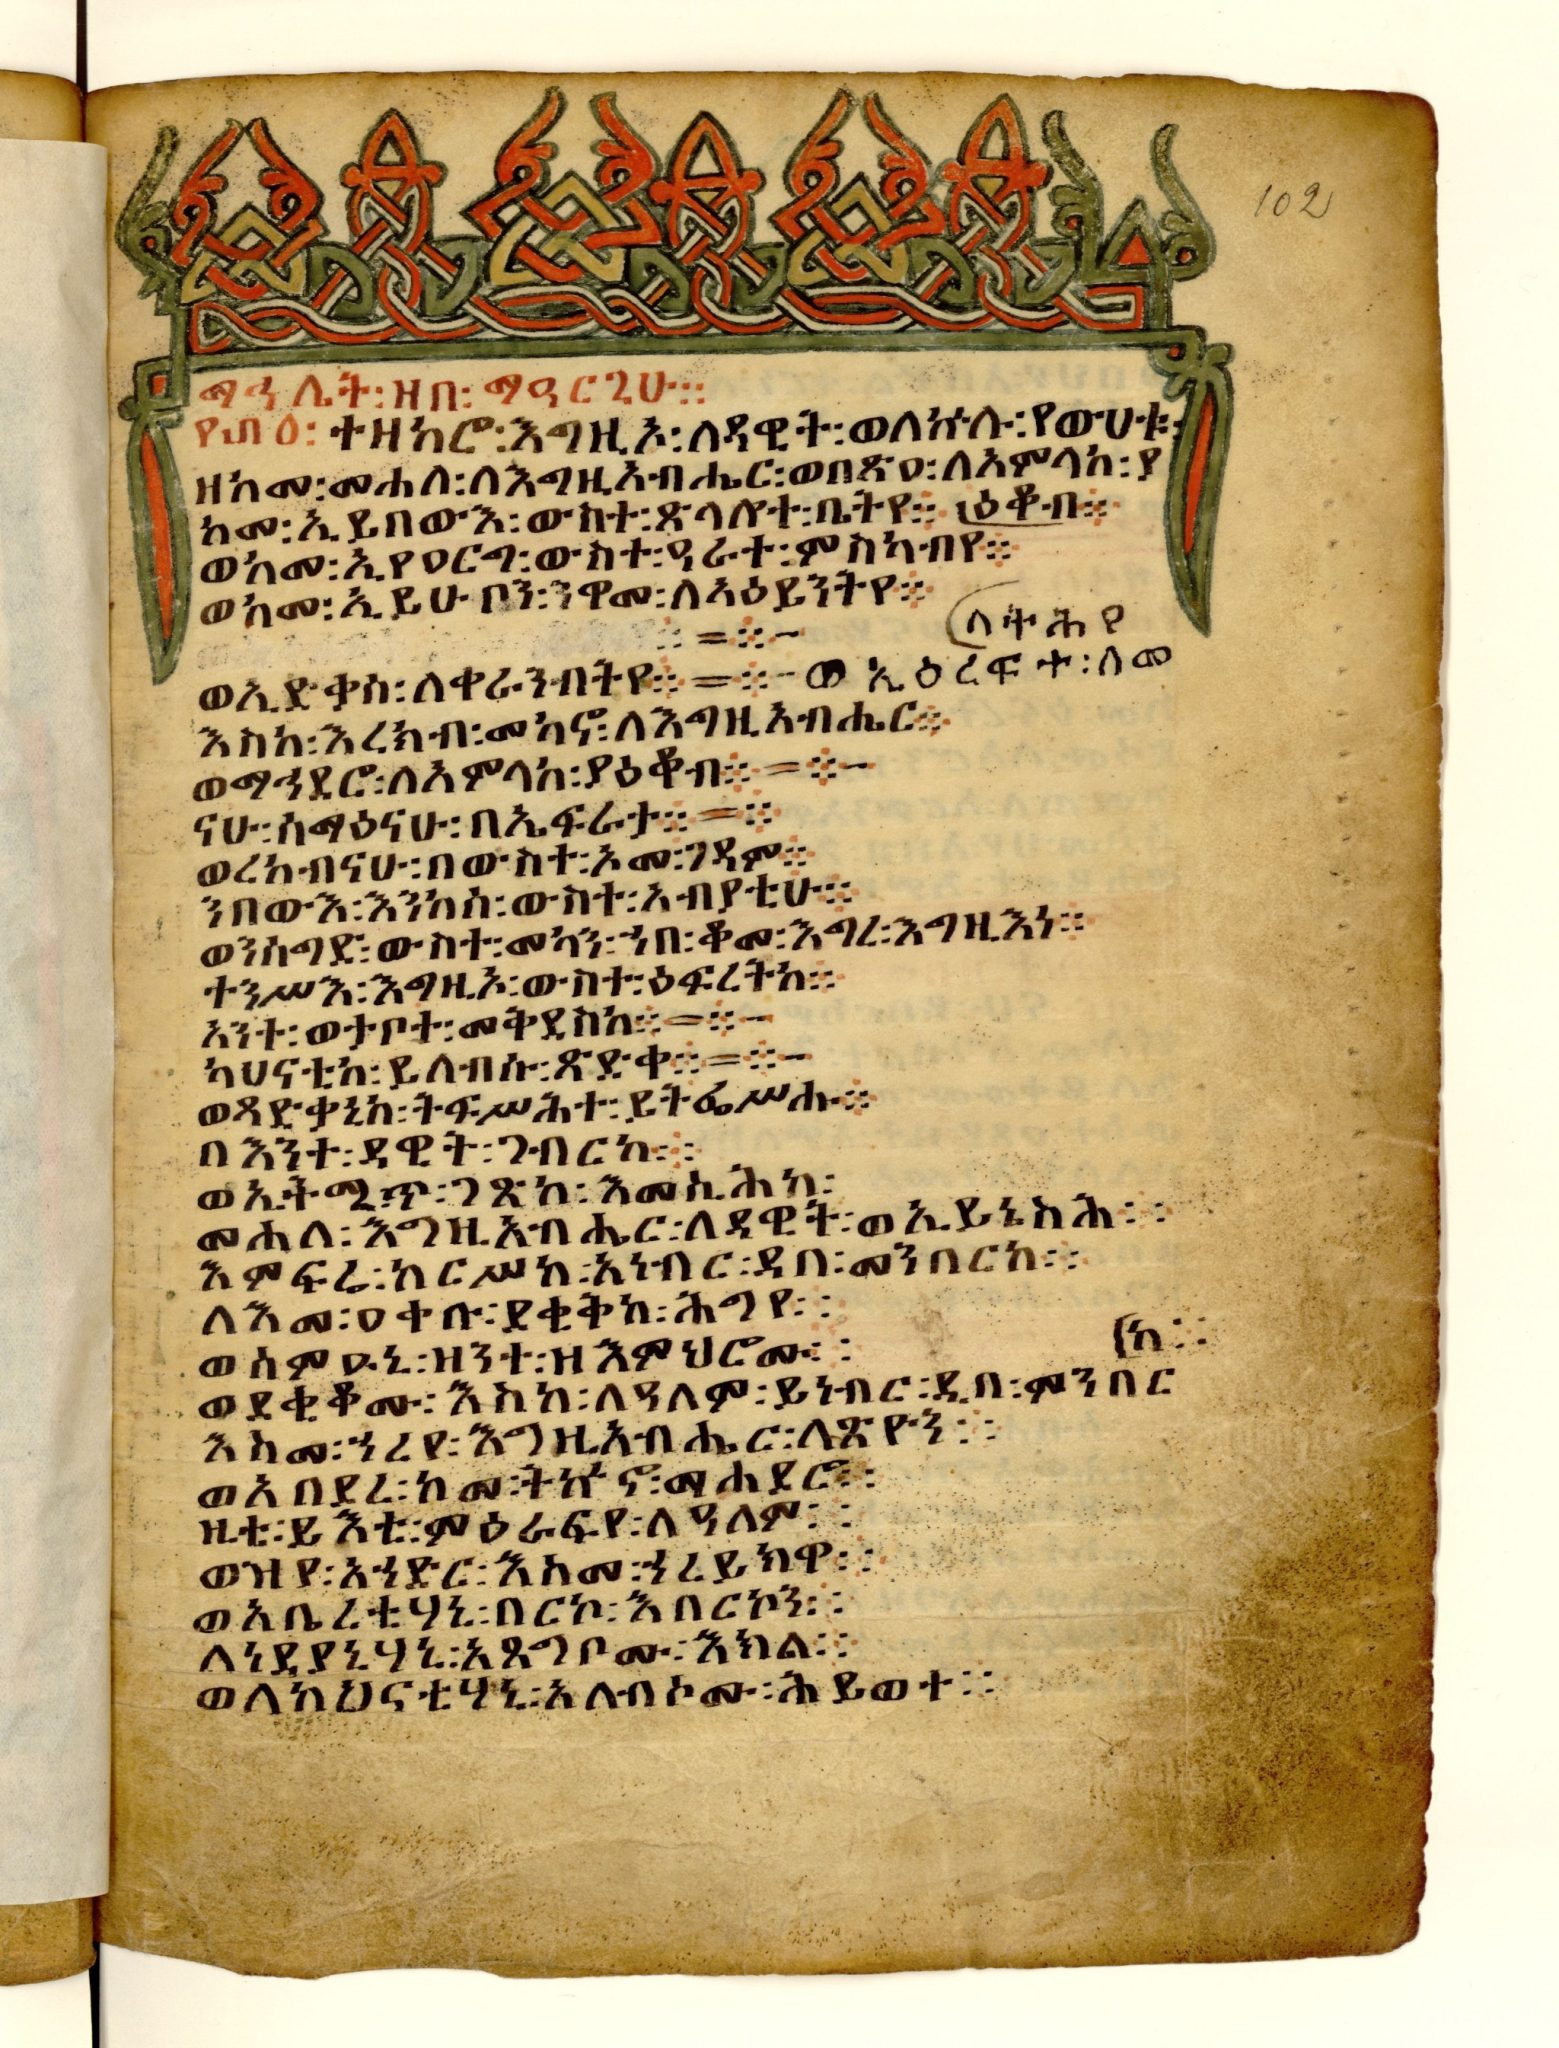 102
ማኅሌት፡ዘበ፡ማዓርጊሁ፡፡
፻፴፩፡ ተዘከሮ፡እግዚኦ፡ለዳዊት፡ወለኵሉ፡የውሀቱ፡
ዘከመ፡መሐለ፡ለእግዚአብሔር፡ወበጽዐ፡ለአምላከ፡ያ
ከመ፡ኢይበውእ፡ውስተ፡ጽላሎተ፡ቤትየ። ዕቆብ።
ወከመ፡ኢየዐርግ፡ውስተ፡ዓራተ፡ምስካብየ።
ወከመ፡ኢይሁቦን፡ንዋመ፡ለአዕይንትየ።
ለትሕየ
ወኢድቃስ፡ለቀራንብትየ። ወኢዕረፍተ፡ለመ
እስከ፡እረክብ፡መካኖ፡ለእግዚአብሔር።
ወማኅደሮ፡ለአምላከ፡ያዕቆብ።
ናሁ፡ሰማዕናሁ፡በኤፍራታ።
ወረከብናሁ፡በውስተ፡ኦመ፡ገዳም።
ንበውእ፡እንከሰ፡ውስተ፡አብያቲሁ።
ወንሰግድ፡ውስተ፡መካን፡ኀበ፡ቆመ፡እግረ፡እግዚእነ።
ተንሥእ፡እግዚኦ፡ውስተ፡ዕፍረትከ።
አንተ፡ወታቦተ፡መቅደስከ።
ካህናቲከ፡ይለብሱ፡ጽድቀ።
ወጻድቃኒከ፡ትፍሥሕተ፡ይትፌሥሑ።
በእንተ፡ዳዊት፡ገብርከ።
ወኢትሚጥ፡ገጽከ፡እመሲሕከ፡
መሐለ፡እግዚአብሔር፡ለዳዊት፡ወኢይኔስሕ።
እምፍሬ፡ከርሥከ፡አነብር፡ዲበ፡መንበርከ።
ለእመ፡ዐቀቡ፡ደቂቅከ፡ሕግየ።
ወስምዑኒ፡ዘንተ፡ዘእምህሮሙ። ከ።
ወደቂቆሙ፡እስከ፡ለዓለም፡ይነብር፡ዲበ፡መንበር
እስመ፡ኀረየ፡እግዚአብሔር፡ለጽዮን።
ወአብደረ፡ከመ፡ትኵኖ፡ማሐደሮ።
ዛቲ፡ይእቲ፡ምዕራፍየ፡ለዓለም።
ወዝየ፡አኀድር፡እስመ፡ኀረይክዋ።
ወአቤረቲሃኒ፡በርኮ፡እበርኮን።
ለነዳያኒሃኒ፡አጸግቦሙ፡እክል።
ወለከህናቲሃኒ፡አለብሶሙ፡ሕይወተ።